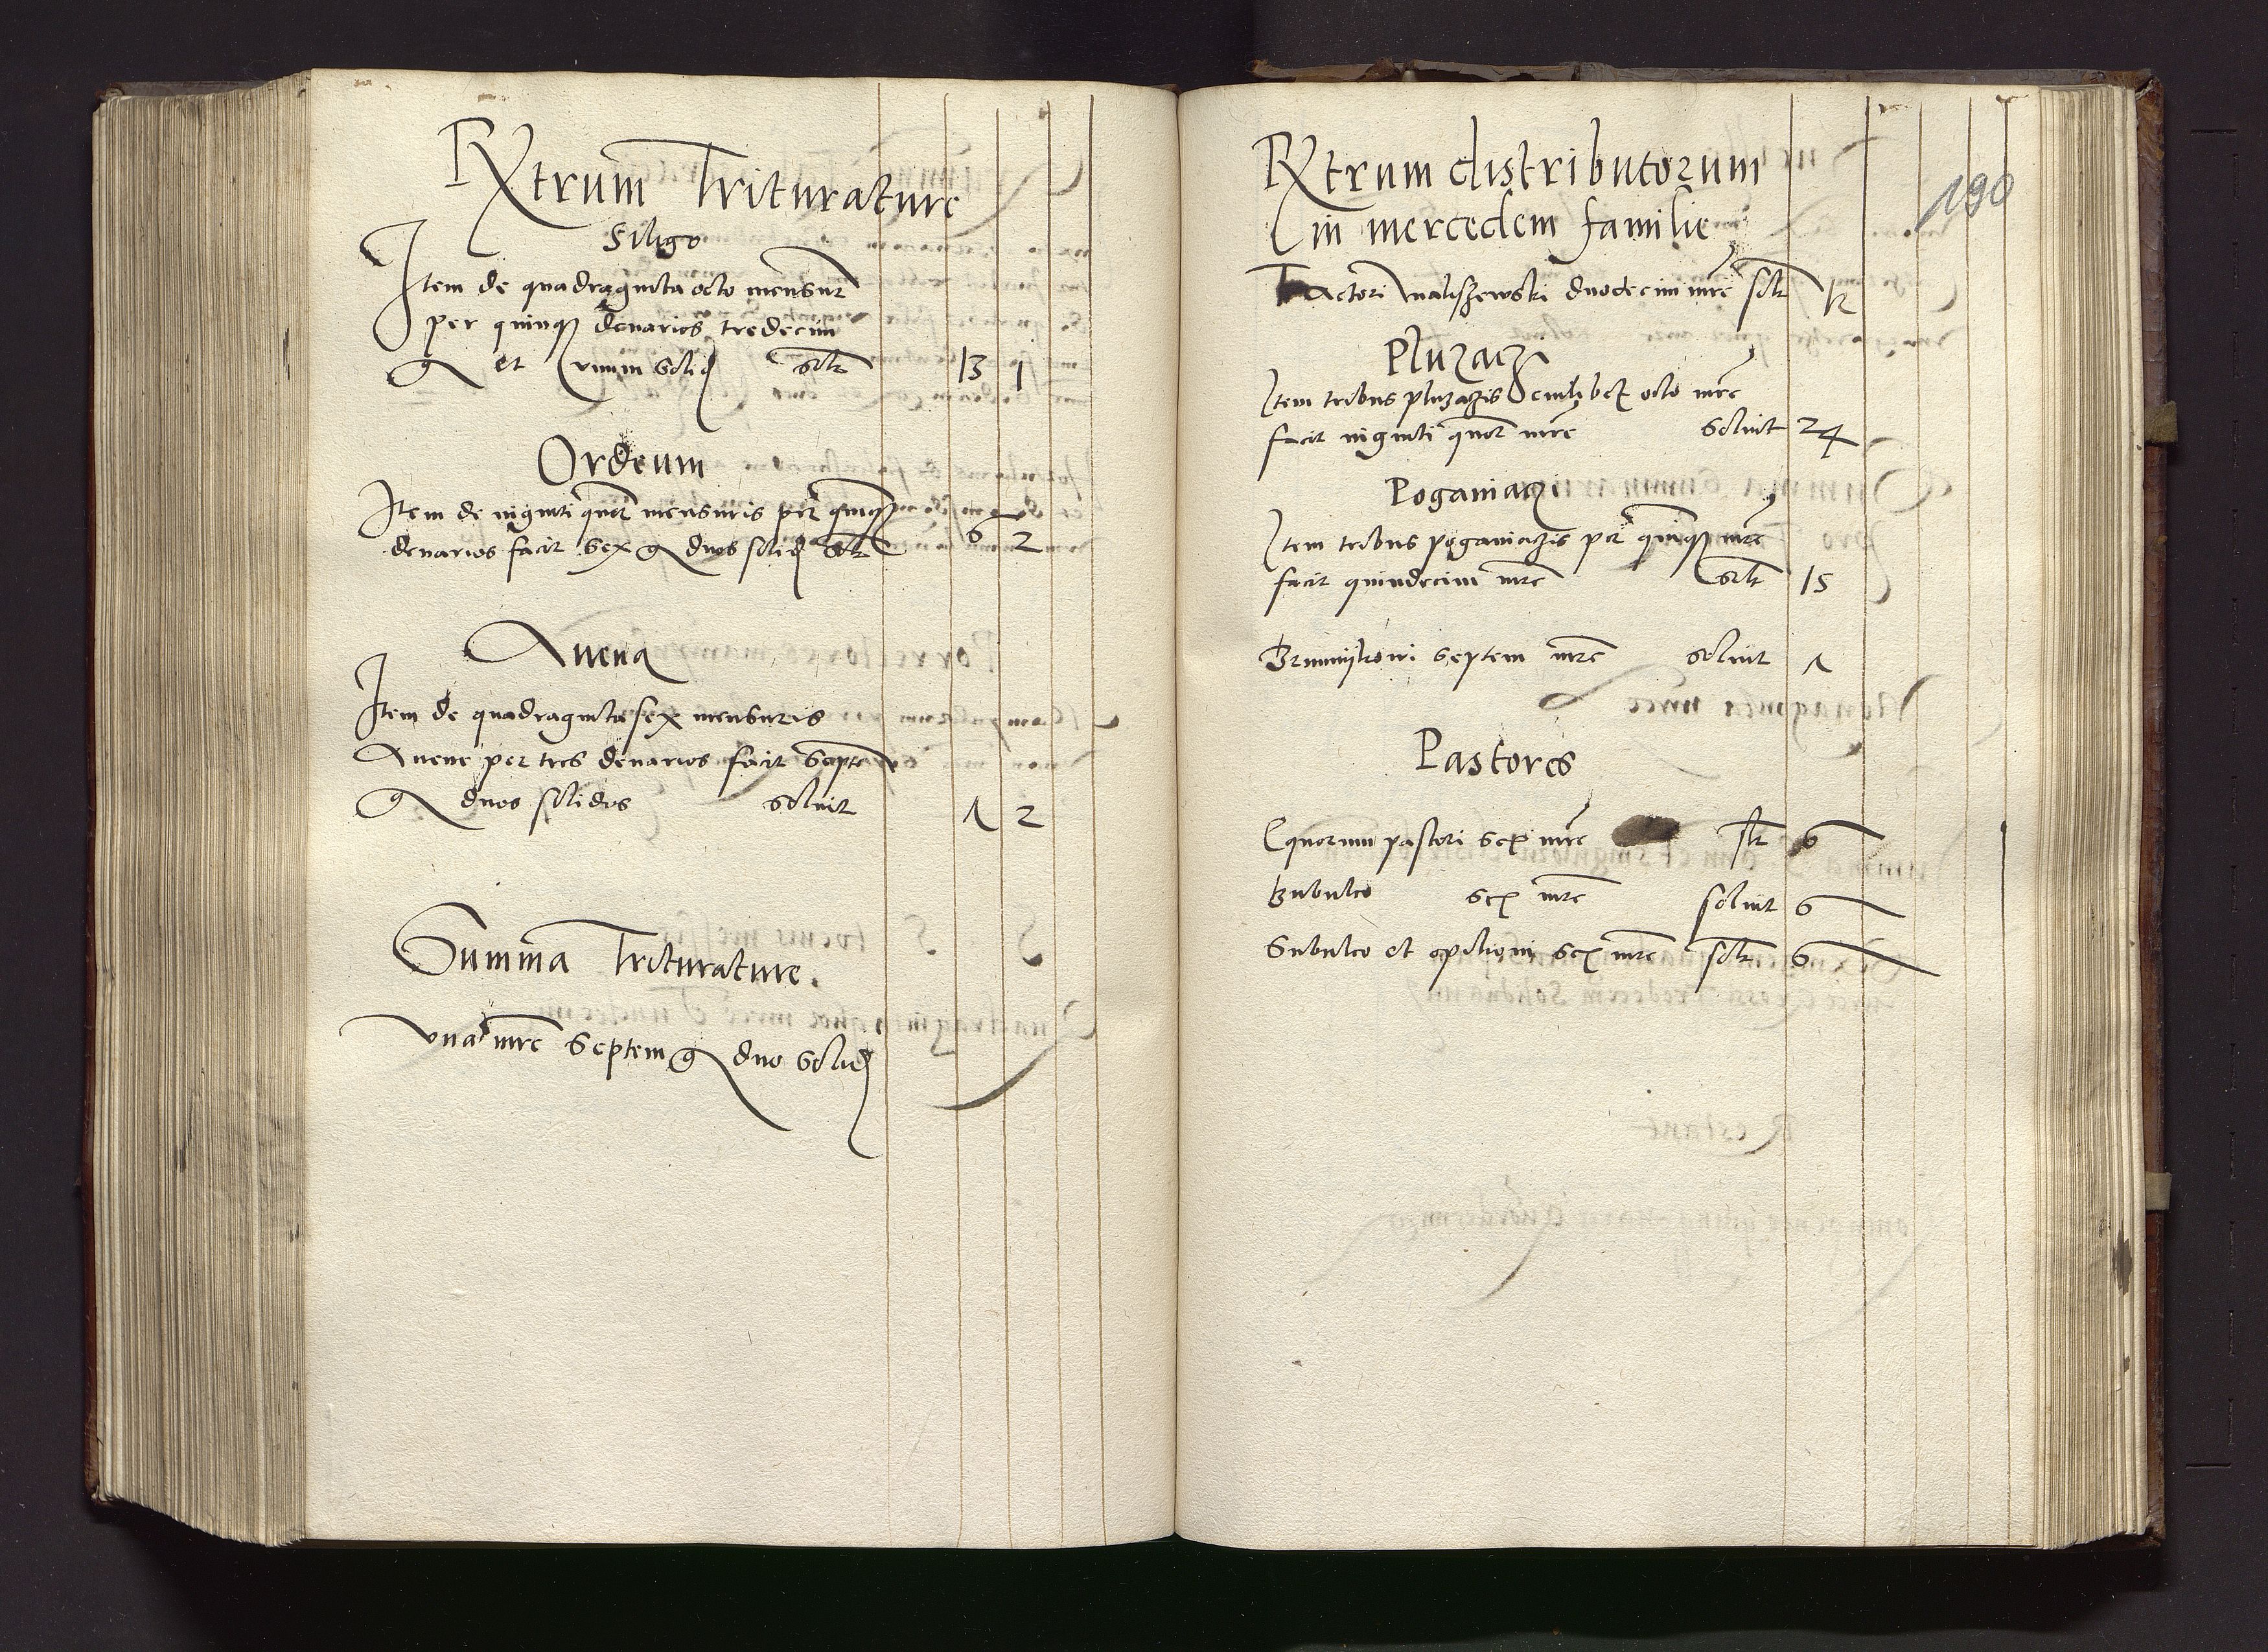 Rxtrum Triturature
Siligo
Item de quadraginta octo mensur
per quinqz denarios tredecim
g et unum solid solt 13 1
Ordeum
Item de viginti quor mensuris per quinqz
denarios facit sex g duos solid solt 6 2
Avena
Item de quadraginta sex mensuris
Avene per tres denarios facit septe
g duos solidos solvit 7 2
Summa Triturature.
una mrc septem g duo solid
Rxtrum distributorum
in mercedem familie
190
Factori Valiszewski duodecim mrc solt 12
Pluzaczi
Item tribus pluzaczis cuilibet octo mrc
facit viginti quor mrc solvit 24
Poganiaczi
Item tribus poganiaczis per quinqz mrc
facit quindecim mrc solt 15
septem mrc solvit 7
Pastores
Equorum pastori sex mrc slt 6
Bubulco sex mrc solvit 6
Subulco et opilioni sex mrc solt 6